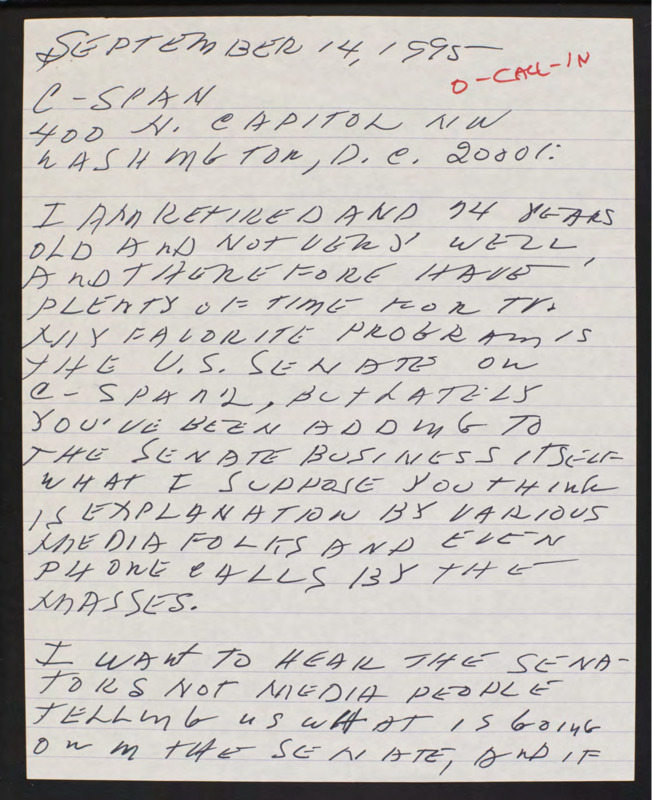 SEPTEMBER 14, 1995
O-CALL-IN
C-SPAN
400 N. CAPITOL NW
WASHINGTON, D.C. 20001:
I AM RETIRED AND 74 YEARS
OLD AND NOT VERY WELL,
AND THEREFORE HAVE
PLENTY OF TIME FOR TV.
MY FAVORITE PROGRAM IS
THE U.S. SENATE ON
C-SPAN 2, BUT LATELY
YOU'VE BEEN ADDING TO
THE SENATE BUSINESS ITSELF
WHAT I SUPPOSE YOU THINK
IS EXPLANATION BY VARIOUS
MEDIA FOLKS AND EVEN
PHONE CALLS BY THE
MASSES.
I WANT TO HEAR THE SENA-
TORS NOT MEDIA PEOPLE
TELLING US WHAT IS GOING
ON IN THE SENATE, AND IF